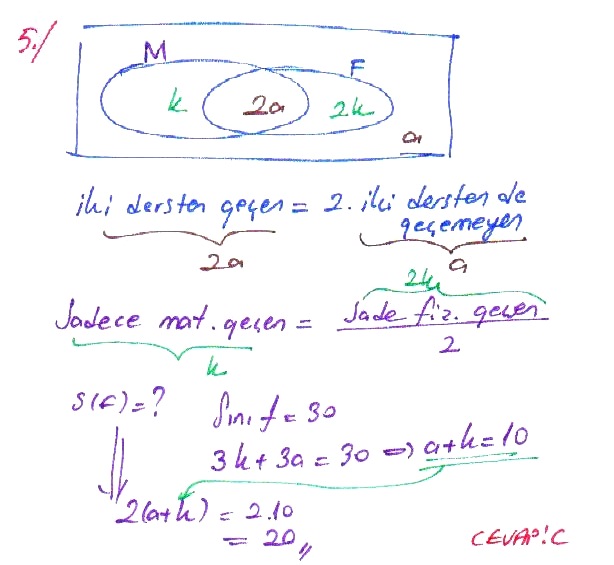 5./
M
F
k
2a
2k
a
iki dersten geçen = 2. iki dersten de
geçemeyen
2a
a
2k
Sadece mat. geçen = Sade fiz. geçen
2
k
S(F) = ?
Sınıf = 30
3k + 3a = 30 => a+k = 10
2(a+k) = 2.10
= 20,,
CEVAP: C